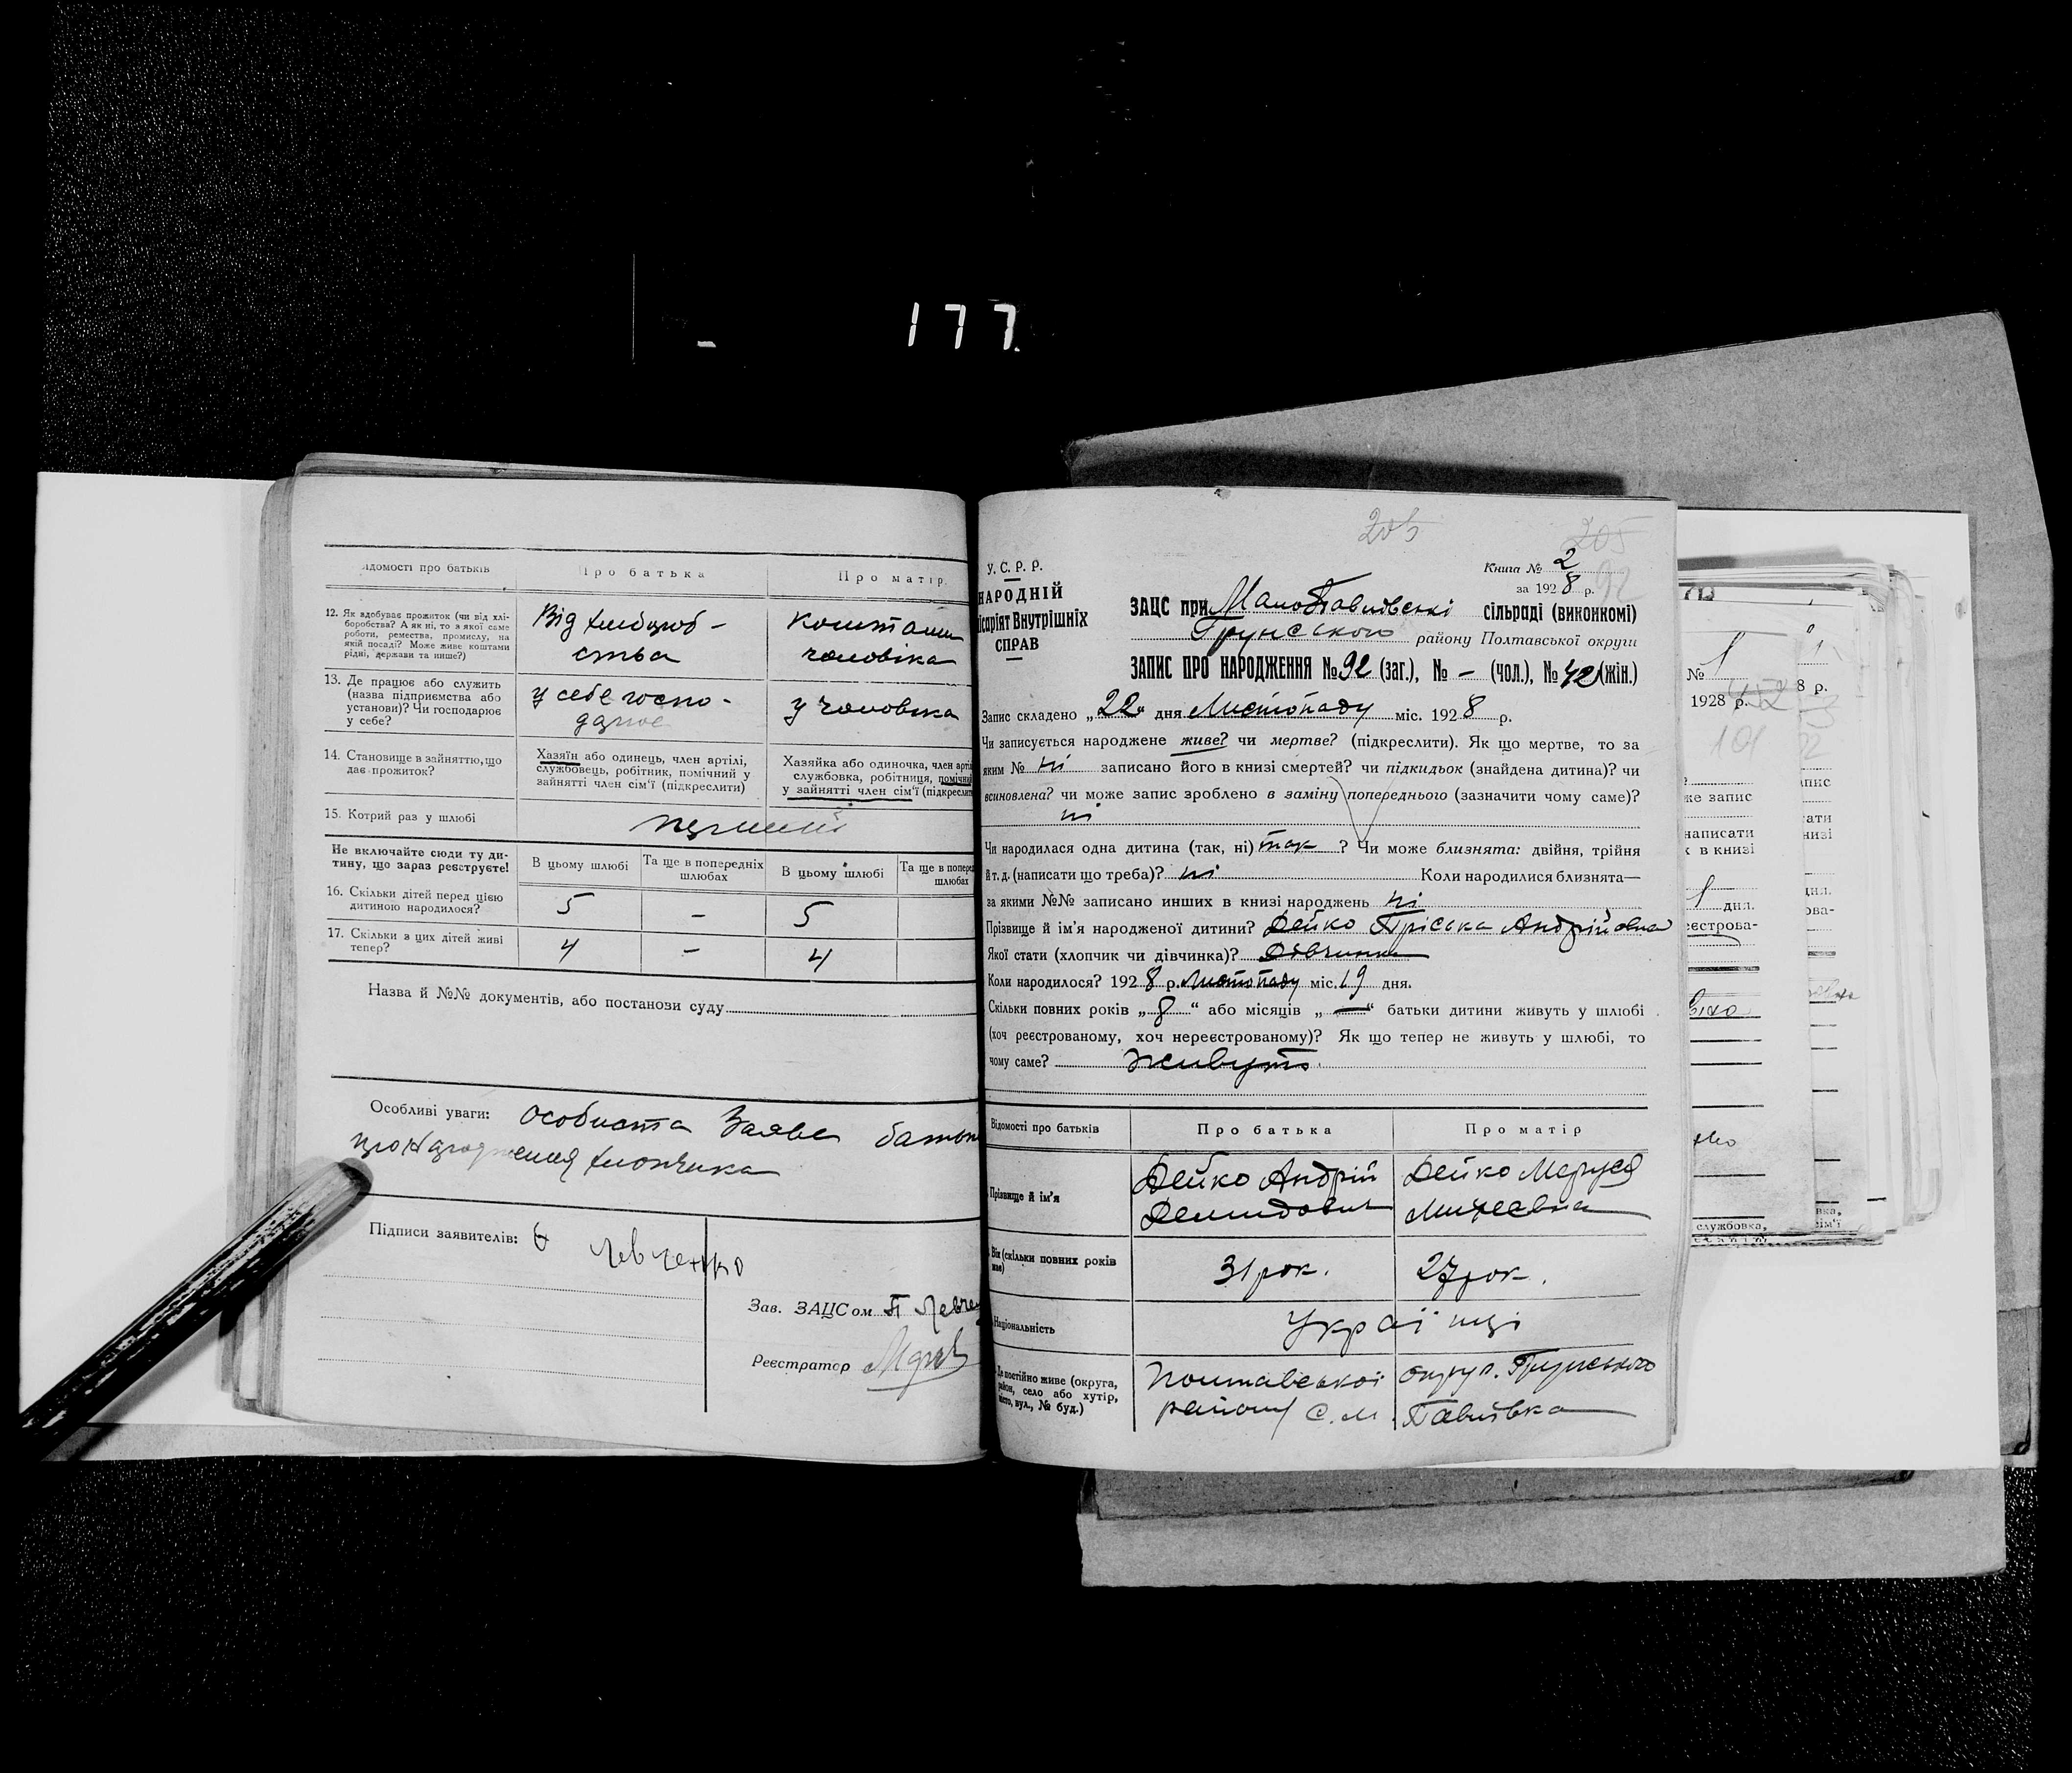 177
відомості про батьків
Про батька
Про матір
12. Як здобуває прожиток (чи від хлі-
боробства? А як ні, то з якої саме
роботи, ремества, промислу, на
якій посаді? Може живе коштами
рідні, держави та инше?)
Від хлібороб-
ства
коштами
чоловіка
13. Де працює або служить
(назва підприємства або
установи)? Чи господарює
у себе?
у себе госпо-
дарює
у чоловіка
14. Становище в зайняттю, що
дає прожиток?
Хазяїн або одинець, член артілі,
службовець, робітник, помічний у
зайнятті член сім'ї (підкреслити)
Хазяйка або одиночка, член артіл
службовка, робітниця, помічни
у зайнятті член сім'ї (підкреслит
15. Котрий раз у шлюбі
перший
Не включайте сюди ту ди-
тину, що зараз реєструєте!
В цьому шлюбі
Та ще в попередніх
шлюбах
В цьому шлюбі
Та ще в попере
шлюбах
16. Скільки дітей перед цією
дитиною народилося?
5 - 5
17. Скільки з цих дітей живі
тепер?
4 - 4
Назва й №№ документів, або постанови суду
Особливі уваги: особиста Заява батьк
про народження хлопчика
Підписи заявителів: Левченко
Зав. ЗАЦСом П Левче
Реєстратор
205
205
У. С. Р. Р.
НАРОДНІЙ
ісаріят Внутрішніх
СПРАВ
Книга № 2
за 1928 р.
92
ЗАЦС при Малопавлівські сільраді (виконкомі)
Грунського району Полтавської округи
ЗАПИС ПРО НАРОДЖЕННЯ № 92 (заг.), № - (чол.), № 42 (жін.)
Запис складено „22" дня Листопаду міс. 1928 р.
Чи записується народжене живе? чи мертве? (підкреслити). Як що мертве, то за
яким № ні записано його в книзі смертей? чи підкидьок (знайдена дитина)? чи
всиновлена? чи може запис зроблено в заміну попереднього (зазначити чому саме)?
ні
Чи народилася одна дитина (так, ні) так ? Чи може близнята: двійня, трійня
й т. д. (написати що треба)? ні Коли народилися близнята—
за якими №№ записано инших в книзі народжень ні
Прізвище й ім'я народженої дитини? Дейко Пріська Андрійовна
Якої стати (хлопчик чи дівчинка)? Дівчинка
Коли народилося? 1928 р. Листопаду міс. 19 дня.
Скільки повних років „8" або місяців „—" батьки дитини живуть у шлюбі
(хоч реєстрованому, хоч нереєстрованому)? Як що тепер не живуть у шлюбі, то
чому саме? Живуть.
Відомості про батьків
Про батька
Про матір
Прізвище й ім'я
Дейко Андрій
Демидович
Дейко Маруся
Вік (скільки повних років
має)
31 рок.
27 рок.
Національність
Українці
Де постійно живе (округа,
район, село або хутір,
місто, вул., № буд.)
Полтавської округ. Грунського
району С. М. Павлівка
№ 1
1928 р.
8 р.
101
же запис
написати
к в книзі
1 дня.
еєстрова-
службовка,